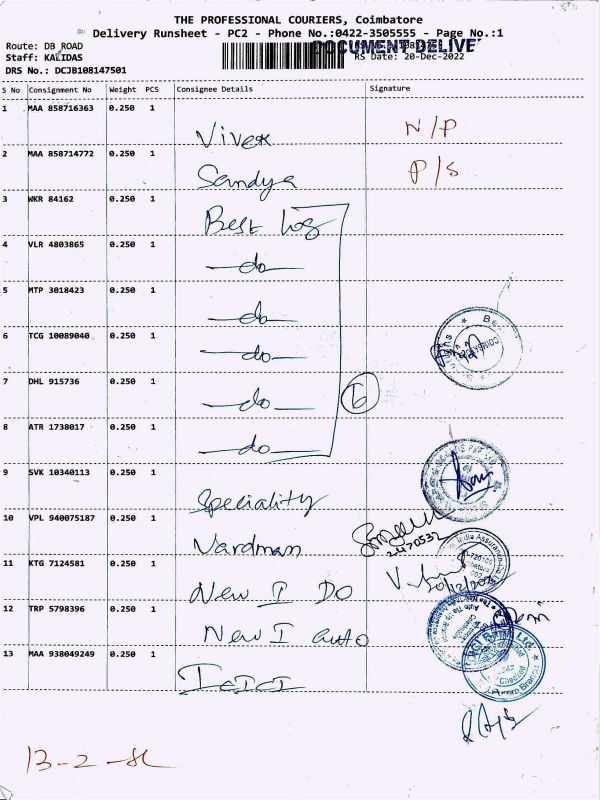 THE PROFESSIONAL COURIERS, Coimbatore
Delivery Runsheet - PC2 - Phone No.:0422-3505555 - Page No.:1
Route: DB ROAD
DOCUMENT DELIVE
Staff: KALIDAS
RS Date: 20-Dec-2022
DRS No.: DCJB108147501
S No Consignment No Weight PCS Consignee Details Signature
1 MAA 858716363 0.250 1
Vivek N/P
2 MAA 858714772 0.250 1
Sandya P/S
3 WKR 84162 0.250 1
Best Log
4 VLR 4803865 0.250 1
-do-
5 MTP 3018423 0.250 1
-do-
6 TCG 10089040 0.250 1
-do-
7 DHL 915736 0.250 1
-do- 6
8 ATR 1738017 0.250 1
-do-
9 SVK 10340113 0.250 1
Speciality
10 VPL 940075187 0.250 1
Vardman
11 KTG 7124581 0.250 1
New I Do
12 TRP 5798396 0.250 1
New I auto
13 MAA 938049249 0.250 1
Icici
13-2-